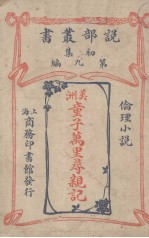 說部叢書
初集
第九編
倫理小說
美洲
童子萬里尋親記
上海
商務印書館發行